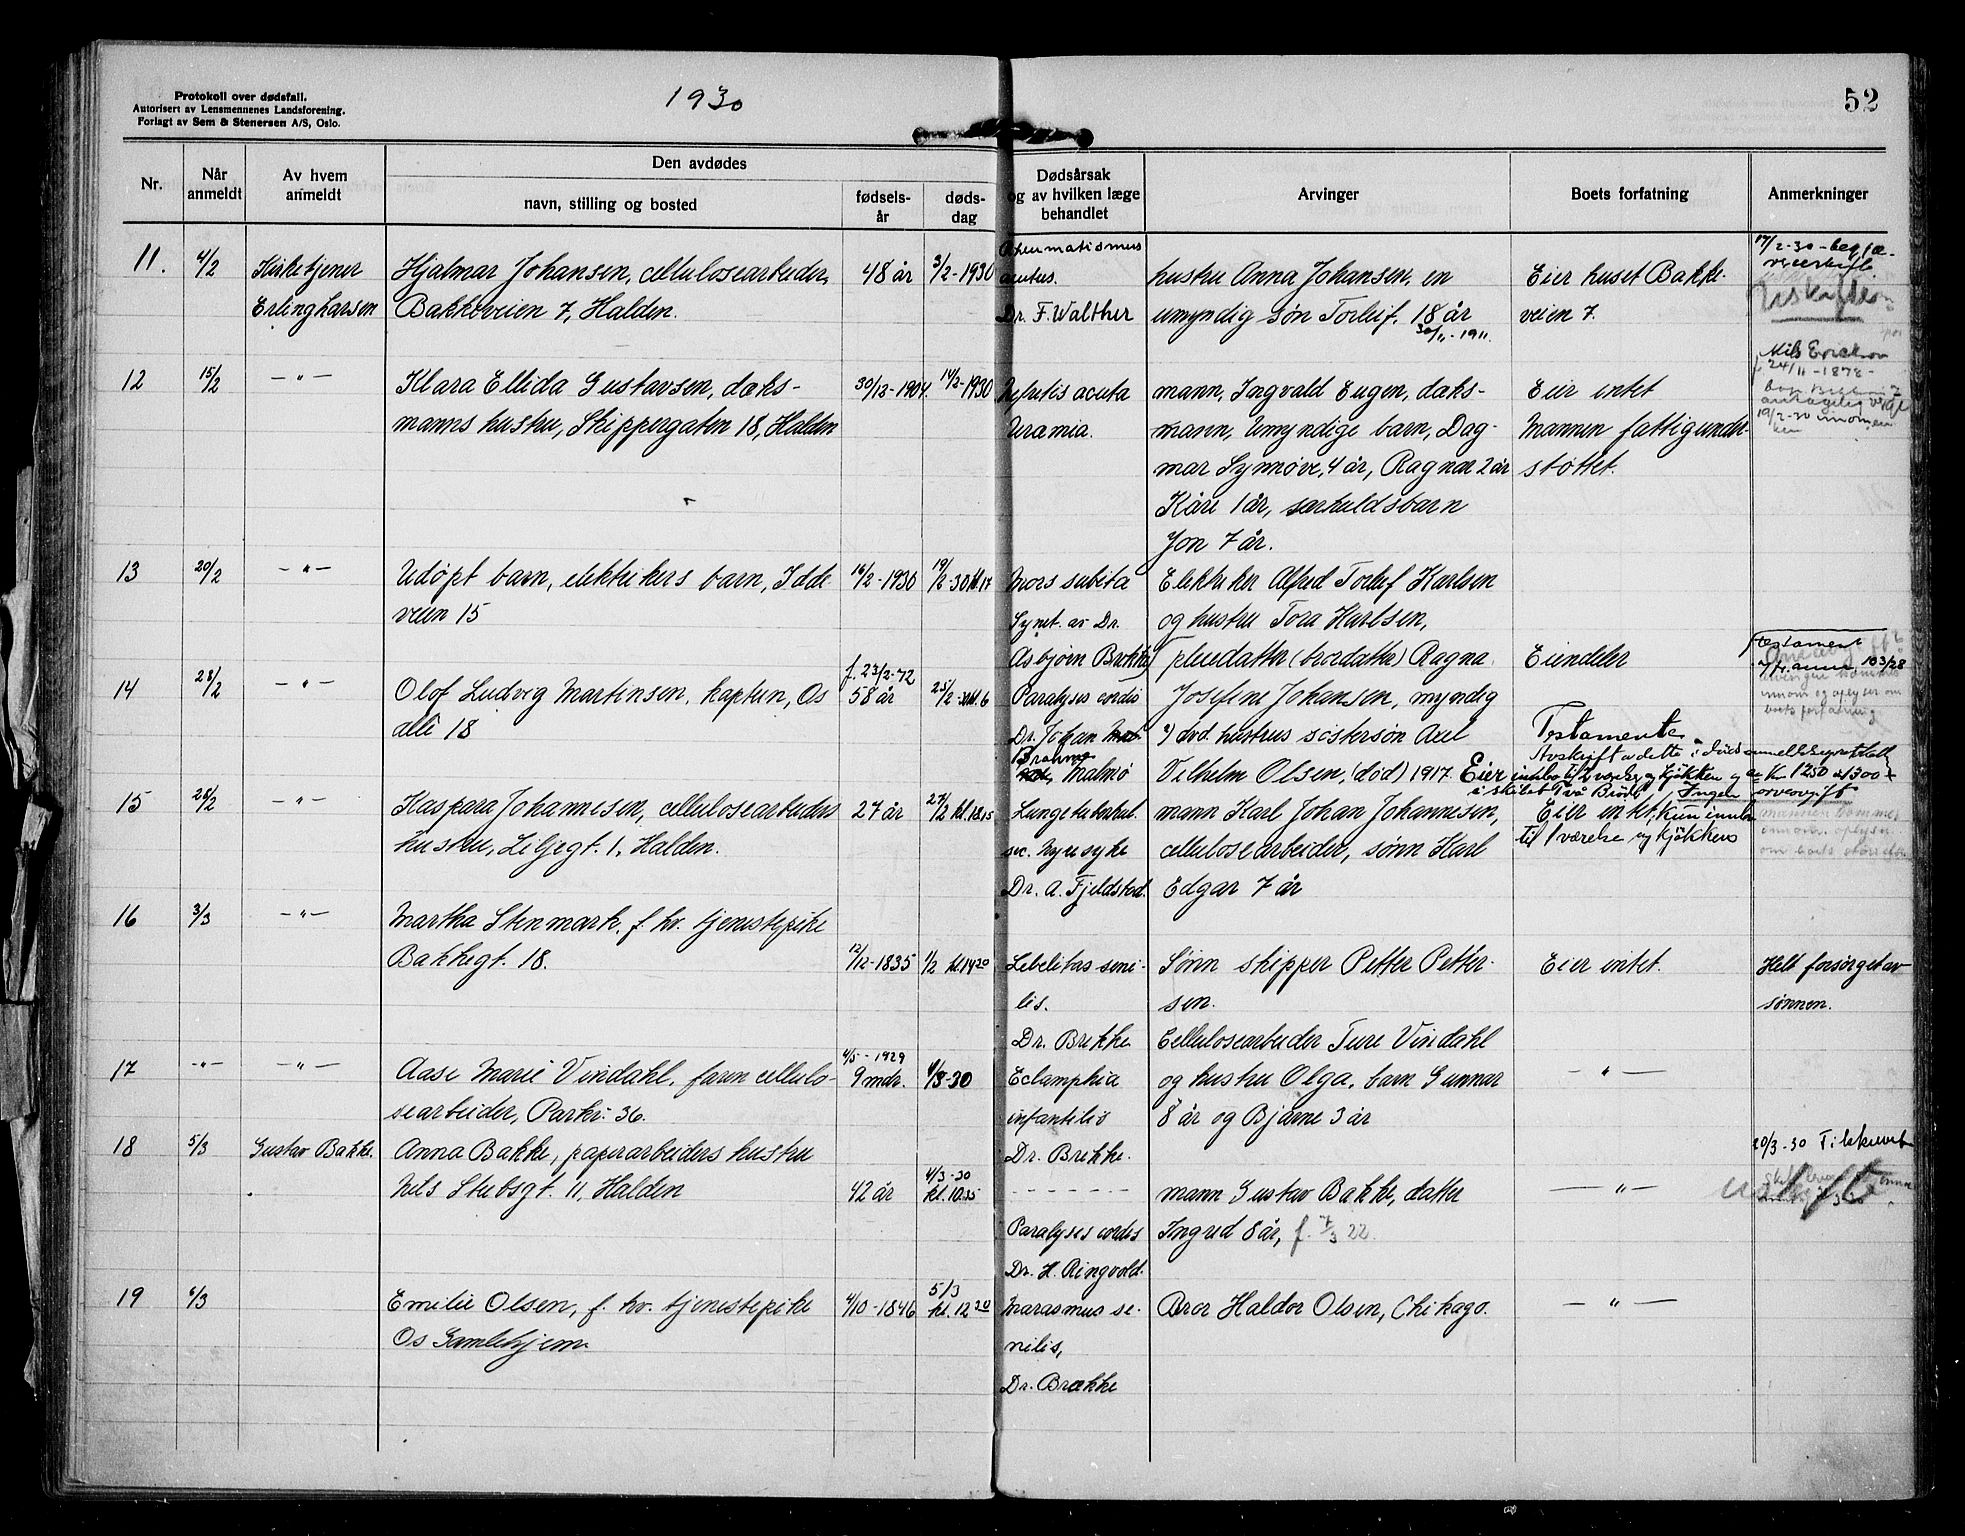 Protokoll over dødsfall.
Autorisert av Lensmennenes Landsforening.
Forlagt av Sem & Stenersen A/S, Oslo.
1930
52
Nr.
Når anmeldt
Av hvem anmeldt
Den avdødes
navn, stilling og bosted
fødselsår
dødsdag
Dødsårsak
og av hvilken læge
behandlet
Arvinger
Boets forfatning
Anmerkninger
11. 4/2 Kirketjener Hjalmar Johansen, cellulosearbeider, 48 år 3/2-1930
Erling Larsen Bakkeveien 7, Halden.
Rheumatismus
acutus.
Dr. F. Walther
hustru Anna Johansen, en
umyndig søn Torleif. 18 år
30/11-1911.
Eier huset Bakke-
veien 7.
17/2-30 - begjæ-
Uskifte
12 15/2 -"- Klara Ellida Gustavsen, daks- 30/12-1904. 14/2-1930
manns hustru, Skippergaten 18, Halden
Nefritis acuta
Uramia.
mann, Ingvald Eugen, daks-
mann, Umyndige barn, Dag-
mar Synnøve, 4 år, Ragnar 2 år
Kåre 1 år, særkuldsbarn
Jon 7 år.
Eier intet
Mannen fattigunder-
støttet.
24/11-1878-
13 20/2 -"- Udøpt barn, elektrikers barn, Idde- 16/2-1930 19/2-30 kl. 17
veien 15
Mors subita
Synet. av Dr.
Asbjørn Brekke
Elektriker Alfred Torleif Karlsen
og hustru Tora Karlsen,
14 28/2 -"- Olof Ludvig Martinsen, kaptein, Os f. 23/2-72
58 år 25/2 kl. 6
alle 18
Paralyses cordis
Dr. Johan
Brahme
Malmø
pleiedatter (brordatter) Ragna
Josefine Johansen, myndig
avd. hustrus søstersøn Axel
Vilhelm Olsen, (død) 1917.
Eiendeler
Testamente
Eier innbo til 2 værelse og kjøkken
Ingen arveavgift
Testament
15 28/2 -"- Kaspara Johannesen, cellulosearbeiders 27 år 27/2 kl. 18.15
hustru, Liljegt. 1, Halden.
Lungetuberkul.
sec. Nyresyke
Dr. A. Fjeldstad.
mann Karl Johan Johannesen,
cellulosearbeider, sønn Karl
Edgar 7 år
Eier intet, kun innbo
til 1 værelse og kjøkken
16 3/3 -"- Martha Stenmark, f. hv. tjenestepike
Bakkegt. 18. 12/12-1835 1/2 kl. 14 20
Debelitas seni-
lis.
Dr. Brekke
Sønn skipper Petter Petter-
sen.
Eier intet.
Helt forsørget av
sønnen.
17 -"- -"- Aase Marie Vindahl, faren cellulo- 4/5-1929
9 mdr. 1/3-30
searbeider, Parkv. 36.
Eclamphia
infantilis
Dr. Brekke.
Cellulosearbeider Ture Vindahl
og hustru Olga, barn Gunnar
8 år og Bjarne 3 år
-"-
18 5/3 Gustav Bakke. Anna Bakke, papirarbeiders hustru
Nils Stubsgt. 11, Halden 42 år 4/3-30
kl. 10.35
Paralyses cordis
Dr. H. Ringvold.
mann Gustav Bakke, datter
Ingrid 8 år, f. 7/3 22.
-"-
20/3-30
uskifte
19 6/3 Emilie Olsen, f. hv. tjenestepike 4/10-1846 5/3
kl. 12 20
Os Gamlehjem
Marasmus se-
nilis,
Dr. Brekke
Bror Haldor Olsen, Chikago.
-"-